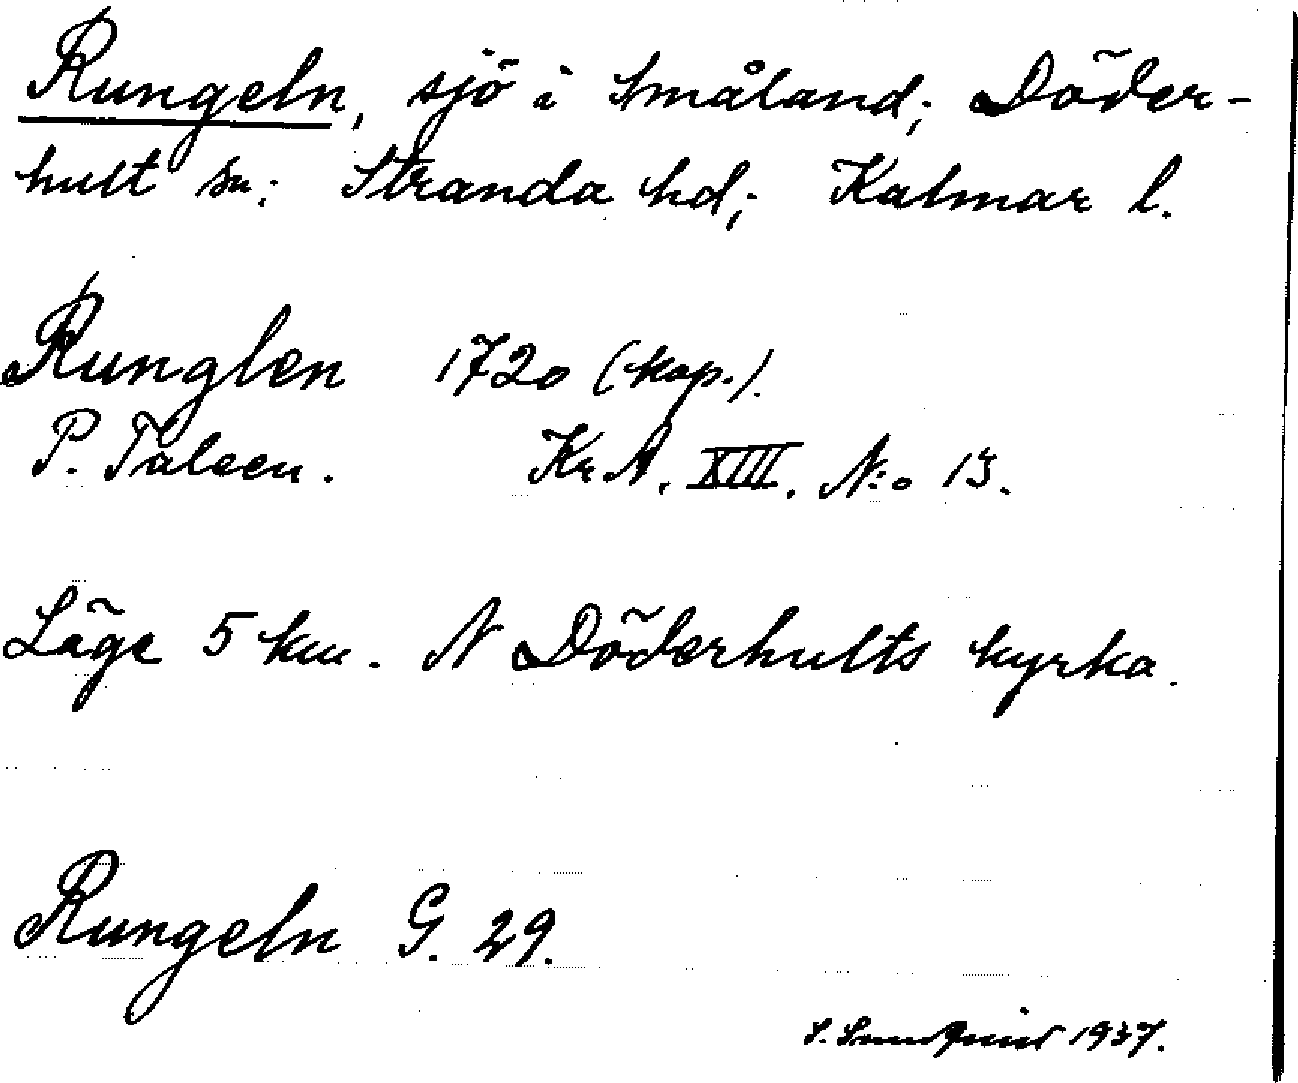 Rungeln, sjö i Småland; Döder-
hult sn; Stranda hd; Kalmar l.
Runglen 1720 (kop.).
P. Taleen. Kr.A. XIII. N:o 13.
Läge 5 km. N Döderhults kyrka.
Rungeln G. 29.
S. 1937.